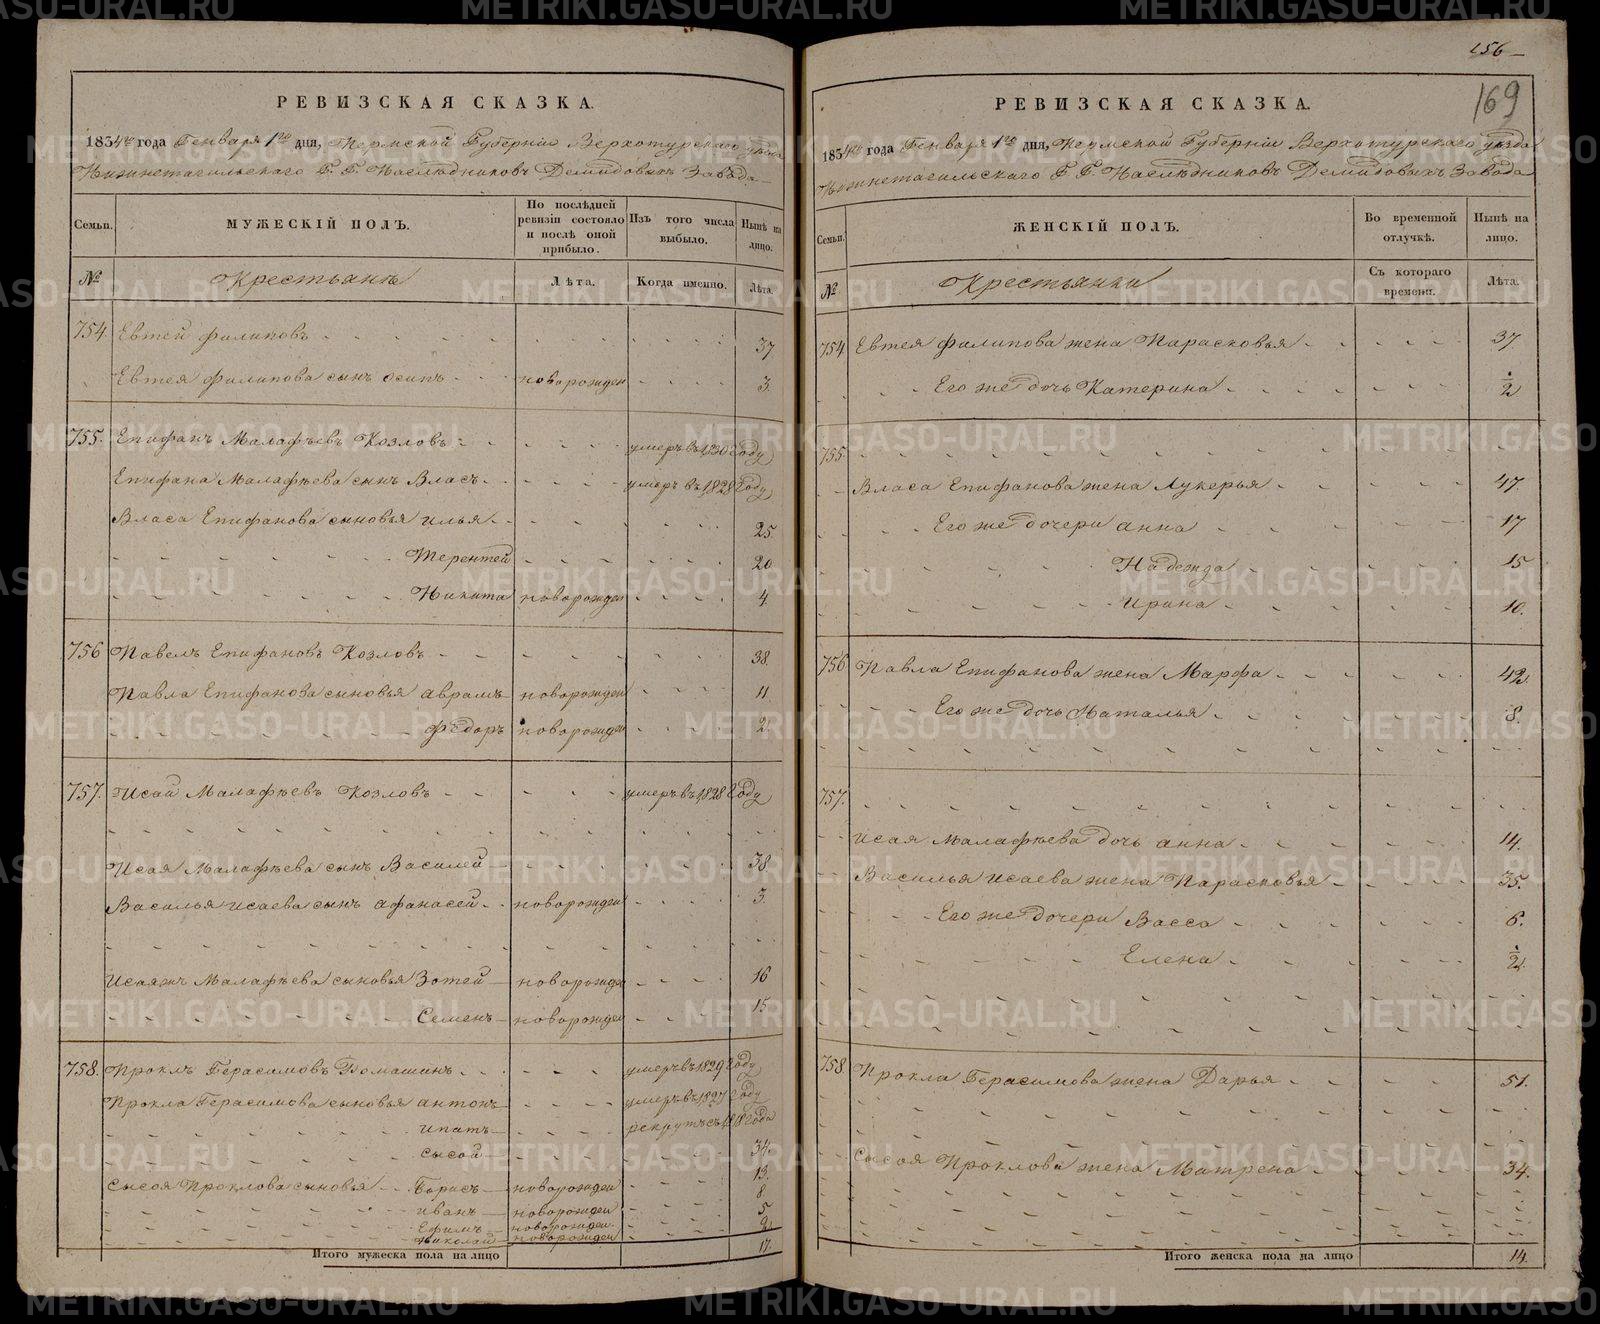 РЕВИЗСКАЯ СКАЗКА.
1834го года Генваря 1го дня, Пермской Губерніи Верхотурскаго уѣзда
Нижнетагильскаго Г. Г. Наслѣдниковъ Демидовыхъ Завода
Семьи.
МУЖЕСКІЙ ПОЛЪ.
По послѣдней ревизіи состояло и послѣ оной прибыло.
Изъ того числа выбыло.
Нынѣ на лицо.
№
Крестьянъ
Лѣта.
Когда именно.
Лѣта.
754. Евтей Филиповъ 37
Евтея Филипова сынъ Осипъ новорожден 3.
755. Епифанъ Малафѣевъ Козловъ умеръ въ 1830 Году
Епифана Малафѣева сынъ Власъ умеръ въ 1828 Году
Власа Епифанова сыновья Илья 25.
Терентей 20
Никита новорожден 4.
756 Павелъ Епифановъ Козловъ 38.
Павла Епифанова сыновья Аврамъ новорожден 11
Федоръ новорожден 2
757. Исай Малафѣевъ Козловъ умеръ въ 1828 Году
Исая Малафѣева сынъ Василей 38.
Василья Исаева сынъ Афанасей новорожден 3.
Исаяжъ Малафѣева сыновья Зотей новорожден 16
Семенъ новорожден 15
758. Проклъ Герасимовъ умеръ въ 1829 Году
Прокла Герасимова сыновья Антонъ умеръ въ 1827 Году
Ипатъ рекрутъ съ 1818 Года
Сысой 34.
Сысоя Проклова сыновья Борисъ новорожден 13.
Иванъ новорожден 8.
Ефимъ новорожден 5
Николай новорожден 2.
Итого мужеска пола на лицо 17.
156
169
РЕВИЗСКАЯ СКАЗКА.
1834го года Генваря 1го дня, Пермской Губерніи Верхотурскаго уѣзда
Нижнетагильскаго Г. Г. Наслѣдниковъ Демидовыхъ Завода
Семьи.
ЖЕНСКІЙ ПОЛЪ.
Во временной отлучкѣ.
Нынѣ на лицо.
№
Крестьянки
Съ котораго времени.
Лѣта.
754 Евтея Филипова жена Парасковья 37
Его же дочь Катерина 1/2
755.
Власа Епифанова жена Лукерья 47.
Его же дочери Анна 17
Надежда 15
Ирина 10.
756 Павла Епифанова жена Марфа 42.
Его же дочь Наталья 8.
757.
Исая Малафѣева дочь Анна 14.
Василья Исаева жена Парасковья 35.
Его же дочери Васса 6.
Елена 1/2.
758 Прокла Герасимова жена Дарья 51.
Сысоя Проклова жена Матрена 34.
Итого женска пола на лицо 14.
METRIKI.GASO-URAL.RU